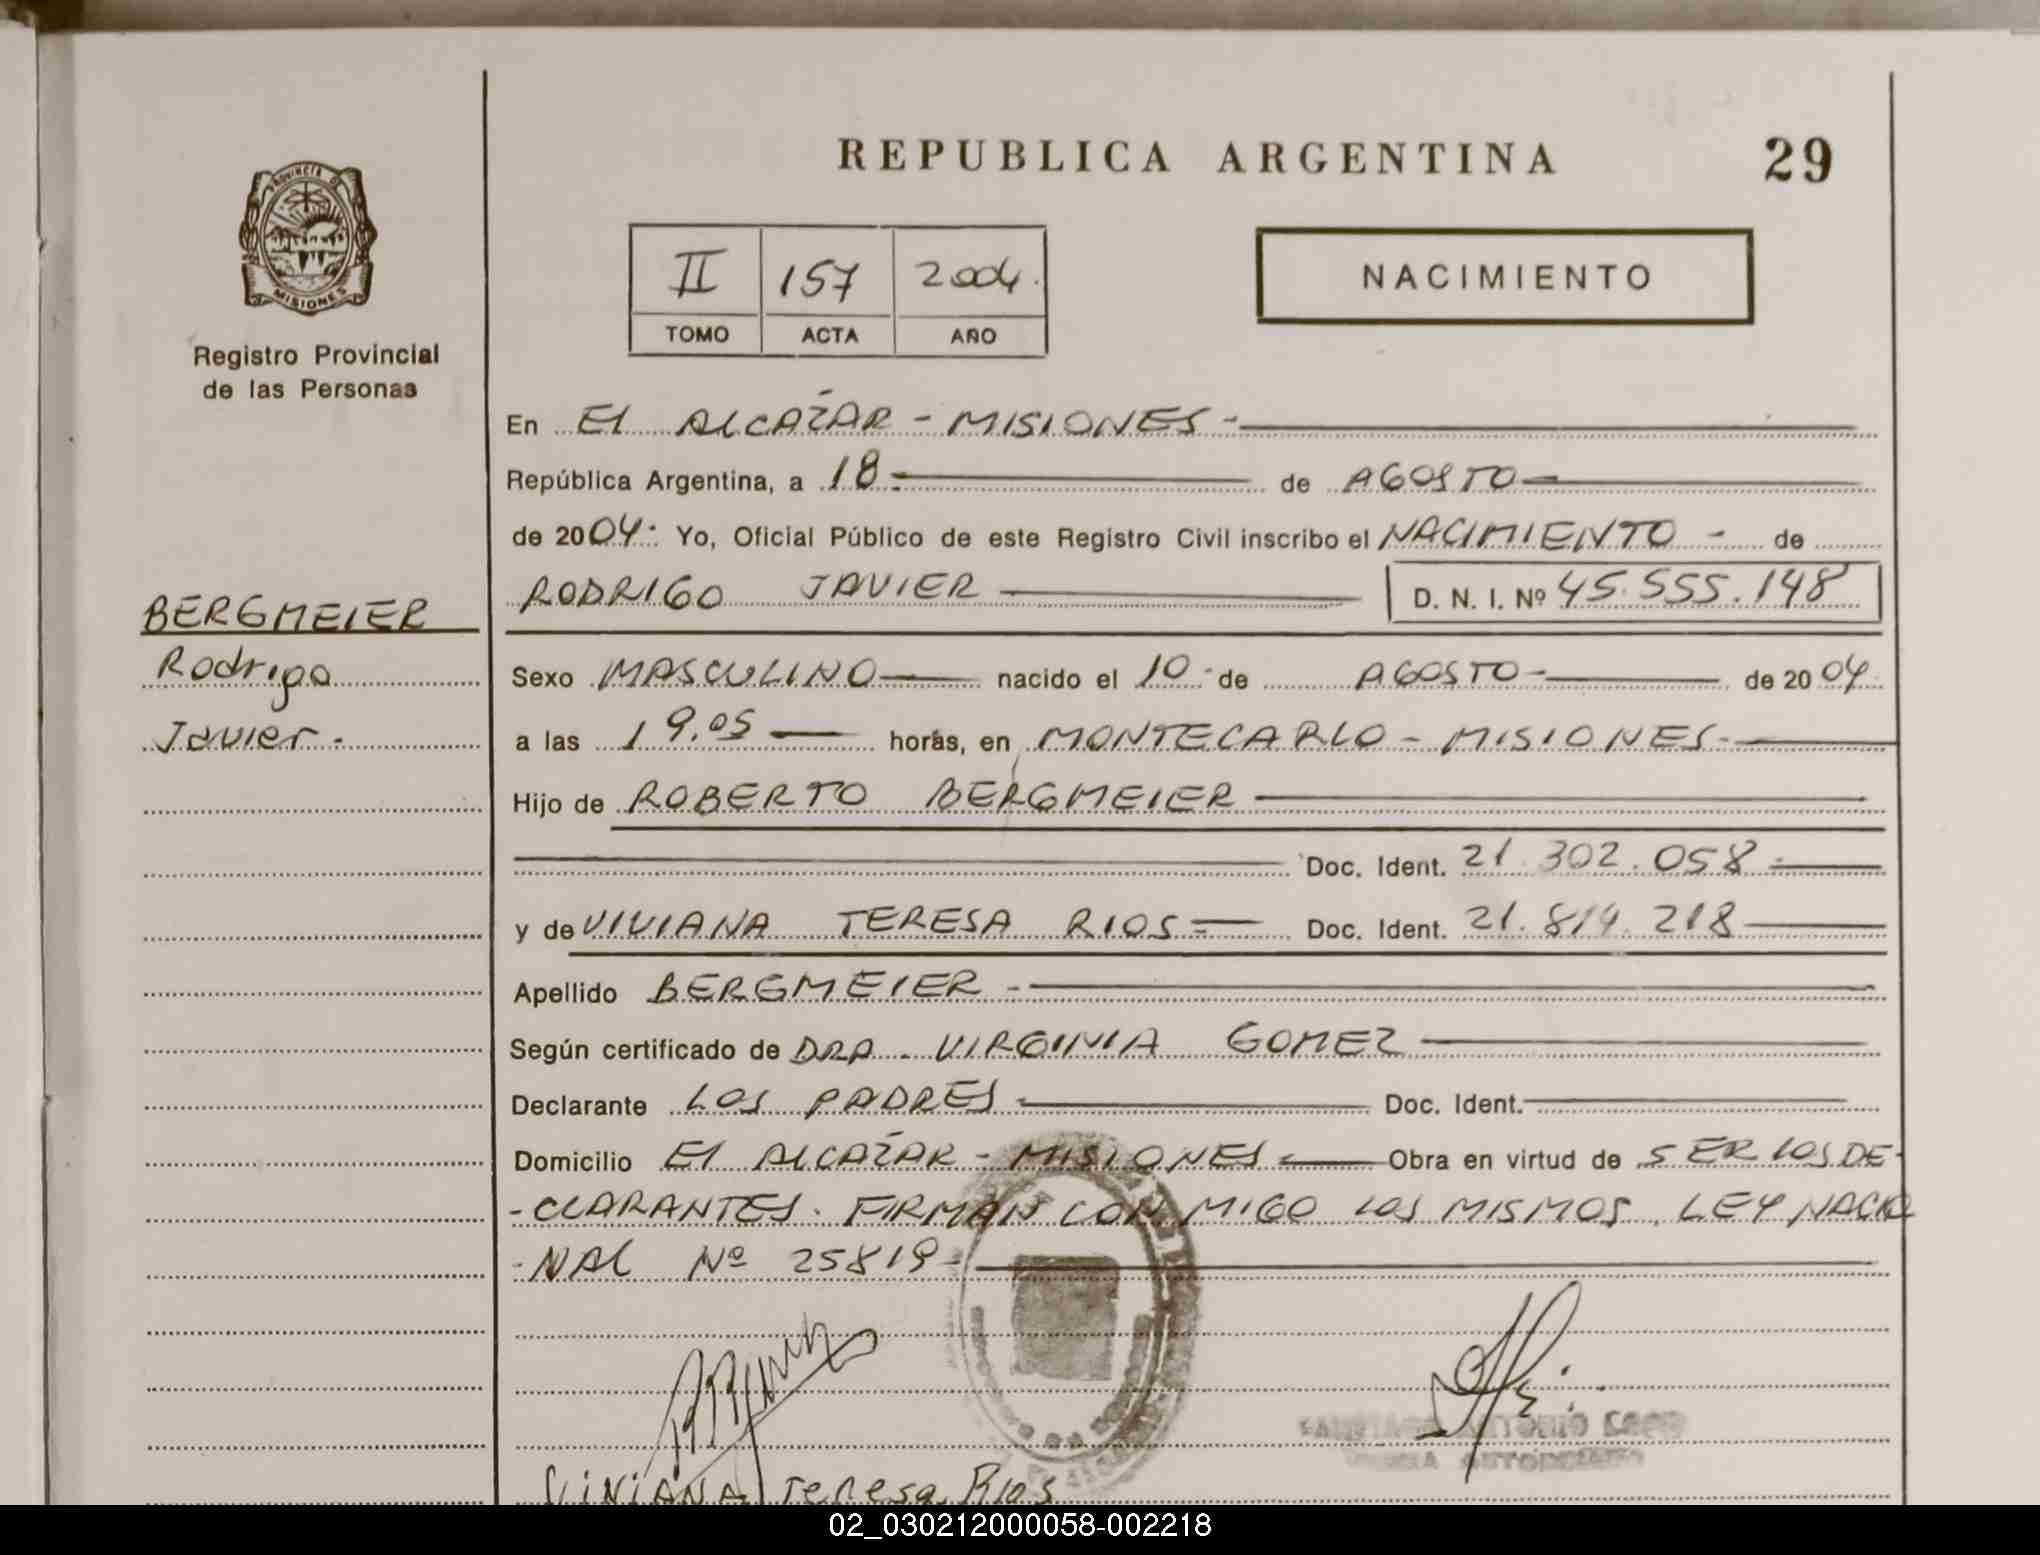 REPUBLICA ARGENTINA
29
PROVINCIA DE
MISIONES
Registro Provincial
de las Personas
II 157 2004.
TOMO ACTA AÑO
NACIMIENTO
En El ALCAZAR - MISIONES -
República Argentina, a 18. de AGOSTO
de 2004. Yo, Oficial Público de este Registro Civil inscribo el NACIMIENTO - de
RODRIGO JAVIER D. N. I. Nº 45.555.148
BERGMEIER
Rodrigo
Javier.
Sexo MASCULINO nacido el 10 - de AGOSTO - de 2004
a las 19.05 horas, en MONTECARLO - MISIONES -
Hijo de ROBERTO BERGMEIER
Doc. Ident. 21.302.058
y de VIVIANA TERESA RIOS = Doc. Ident. 21.819.218
Apellido BERGMEIER -
Según certificado de DRA. VIRGINIA GOMEZ
Declarante LOS PADRES Doc. Ident.
Domicilio El ALCAZAR - MISIONES Obra en virtud de SER LOS DE-
-CLARANTES. FIRMAN CON MIGO LOS MISMOS. LEY NACIO
-NAL Nº 25819-
VIVIANA Teresa Rios
02_030212000058-002218